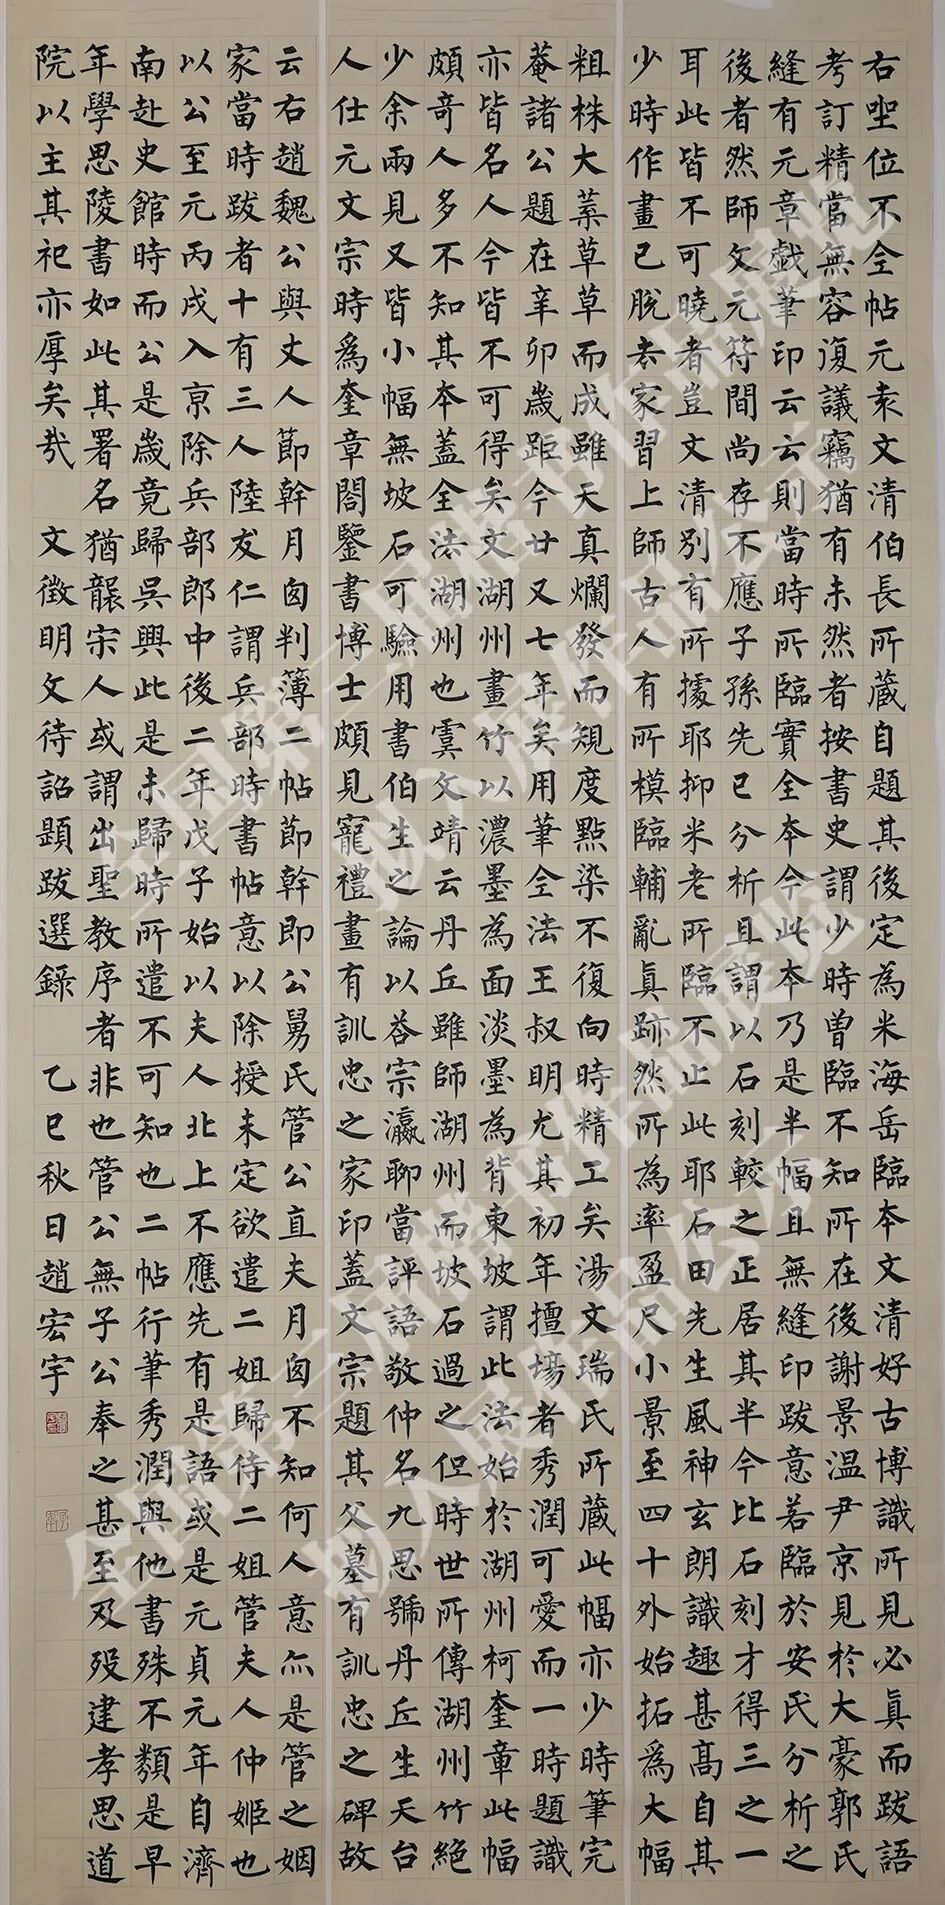 右坐位不全帖元袁文清伯長所藏自題其後定為米海岳臨本文清好古博識所見必真而跋語
考訂精當無容復議竊猶有未然者按書史謂少時曾臨不知所在後謝景溫尹京見於大豪郭氏
縫有元章戲筆印云云則當時所臨實全本今此本乃是半幅且無縫印跋意若臨於安氏分析之
後者然師文元符間尚存不應子孫先已分析且謂以石刻較之正居其半今比石刻才得三之一
耳此皆不可曉者豈文清別有所據耶抑米老所臨不止此耶石田先生風神玄朗識趣甚高自其
少時作畫已脫去家習上師古人有所模臨輔亂真跡然所為率盈尺小景至四十外始拓為大幅
粗株大葉草草而成雖天真爛發而規度點染不復向時精工矣湯文瑞氏所藏此幅亦少時筆完
菴諸公題在辛卯歲距今廿又七年矣用筆全法王叔明尤其初年擅場者秀潤可愛而一時題識
亦皆名人今皆不可得矣文湖州畫竹以濃墨為面淡墨為背東坡謂此法始於湖州柯奎章此幅
頗奇人多不知其本蓋全法湖州也虞文靖云丹丘雖師湖州而坡石過之但時世所傳湖州竹絕
少余兩見又皆小幅無坡石可驗用書伯生之論以荅宗瀛聊當評語敬仲名九思號丹丘生天台
人仕元文宗時為奎章閣鑒書博士頗見寵禮畫有訓忠之家印蓋文宗題其父墓有訓忠之碑故
云右趙魏公與丈人節幹月囪判簿二帖節幹即公舅氏管公直夫月囪不知何人意亦是管之姻
家當時跋者十有三人陸友仁謂兵部時書帖意以除授未定欲遣二姐歸侍二姐管夫人仲姬也
以公至元丙戌入京除兵部郎中後二年戊子始以夫人北上不應先有是語或是元貞元年自濟
南赴史館時而公是歲竟歸吳興此是未歸時所遣不可知也二帖行筆秀潤與他書殊不類是早
年學思陵書如此其署名猶襲宋人或謂出聖教序者非也管公無子公奉之甚至及歿建孝思道
院以主其祀亦厚矣哉 文徵明文待詔題跋選錄 乙巳秋日趙宏宇
全国第三届楷书作品展览
拟入展作品公示
全国第三届楷书作品展览
拟入展作品公示